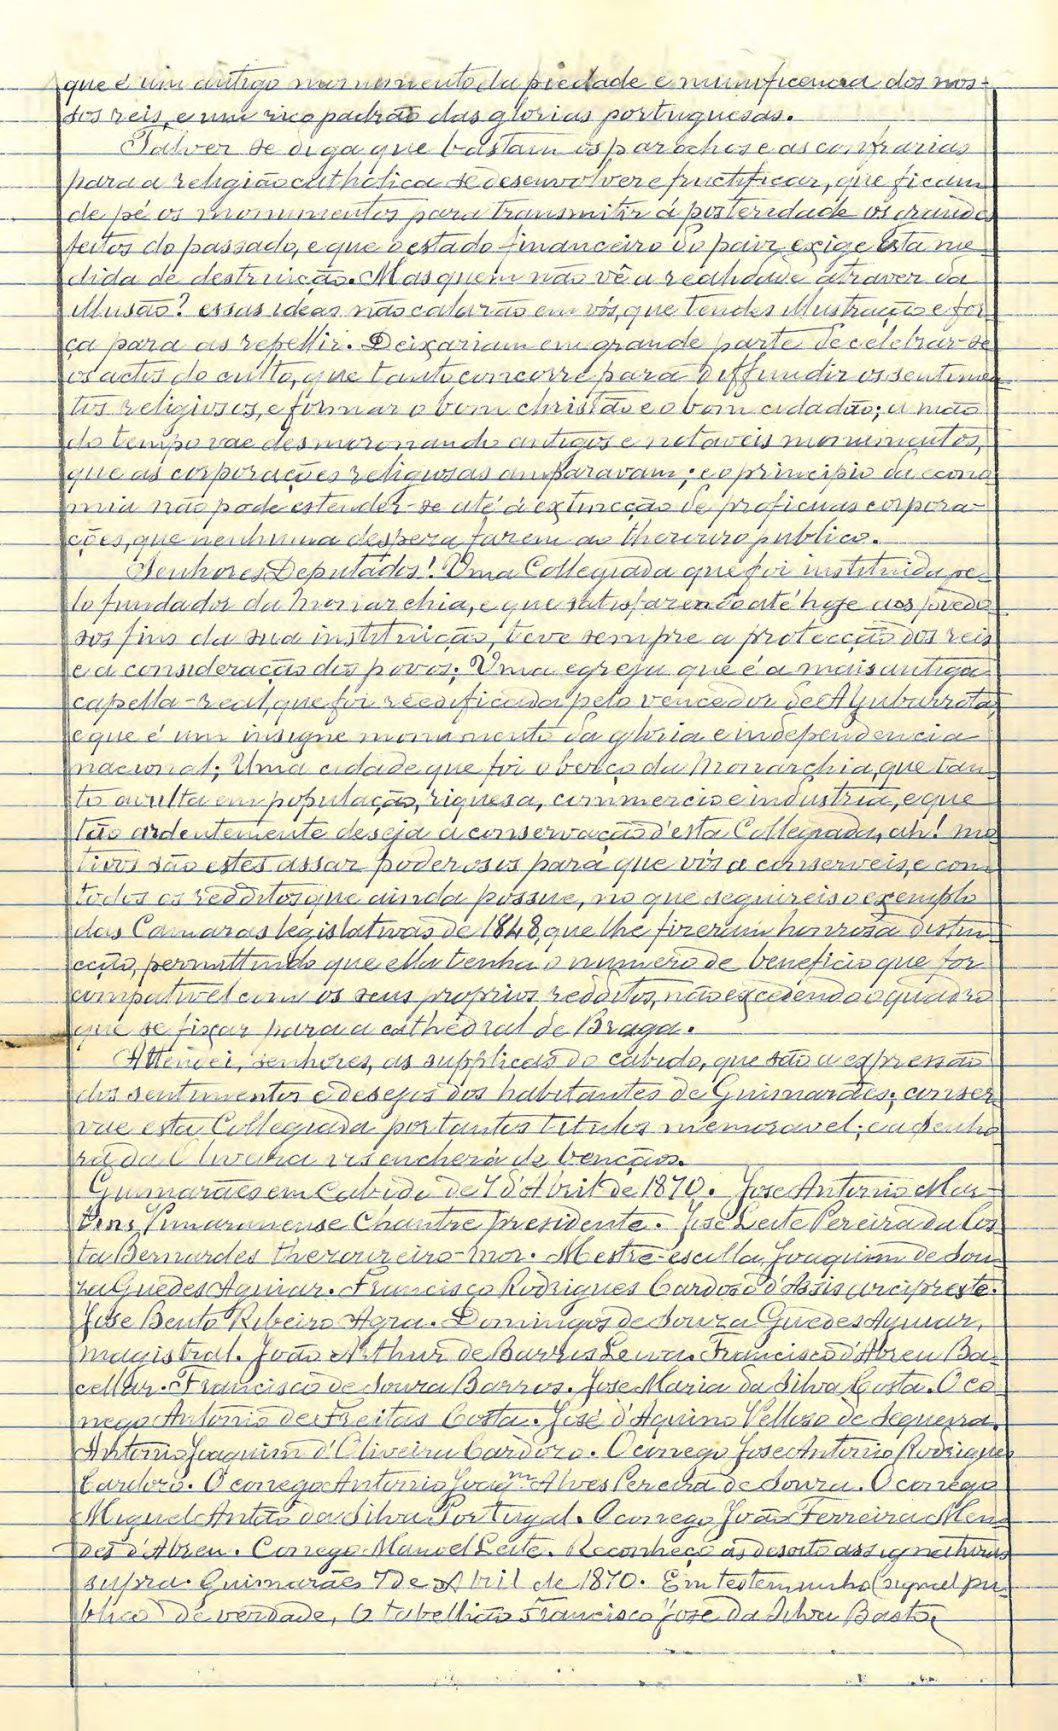 que é um antigo monumento da piedade e munificencia dos nos-
sos reis, e um rico padrão das glorias portuguesas.
Talvez se diga que bastam os parochos e as confrarias
para a religião catholica se desenvolver e fructificar, que ficam
de pé os monumentos para transmitir á posteredade os grandes
feitos do passado, e que o estado financeiro do paiz exige esta me-
dida de destruição. Mas quem não vê a realidade atravez da
illusão? essas ideas não calarão em vós, que tendes illustração e for-
ça para as repellir. Deixariam em grande parte de celebrar-se
os actos do culto, que tanto concorre para diffundir os sentimen-
tos religiosos, e formar o bom christão e o bom cidadão; a mão
do tempo vae desmoronando antigos e notaveis monumentos,
que as corporações religiosas amparavam; e o principio da econo-
mia não pode estender-se até á extincção de proficuas corpora-
ções, que nenhuma despeza fazem ao thezouro publico.
Senhores Deputados! Uma Collegiada que foi instituida pe-
lo fundador da Monarchia, e que satisfazendo até hoje aos piedo-
sos fins da sua instituição, teve sempre a protecção dos reis
e a consideração dos povos; Uma egreja que é a mais antiga
capella-real, que foi reedificada pelo vencedor de Aljubarrota,
e que é um insigne monumento da gloria e independencia
nacional; Uma cidade que foi o berço da Monarchia, que tan-
to avulta em população, riquesa, commercio e industria, e que
tão ardentemente deseja a conservação d'esta Collegiada, ah! mo-
tivos são estes assaz poderosos para que vós a conserveis, e com
todos os redditos que ainda possue, no que seguireis o exemplo
das Camaras legislativas de 1848, que lhe fizeram honrosa distin-
cção, permittindo que ella tenha o numero de beneficio que for
compativel com os seus proprios redditos, não excedendo o quadro
que se fixar para a cathedral de Braga.
Attendei, senhores, as supplicas do cabido, que são a expressão
dos sentimentos e desejos dos habitantes de Guimarães; conser-
vae esta Collegiada por tantos titulos memoravel; e a Senho-
ra da Oliveira vos encherá de benções.
Guimarães em Cabido de 7 d'Abril de 1870. José Antonio Mar-
tins Vimaranense Chantre presidente. José Leite Pereira da Cos-
ta Bernardes thezoureiro-mor. Mestre-escolla, Joaquim de Sou-
za Guedes Aguiar. Francisco Rodrigues Cardoso d'Assis arcipreste.
José Bento Ribeiro Agra. Domingos de Souza Guedes Aguiar,
magistral. João Arthur de Barros Leiva. Francisco d'Abreu Ba-
cellar. Francisco de Souza Barros. José Maria da Silva Costa. O co-
nego Antonio de Freitas Costa. José d'Aquino Velloso de Sequeira.
Antonio Joaquim d'Oliveira Cardozo. O conego José Antonio Rodrigues
Cardozo. O conego Antonio Joaqm Alves Pereira de Souza. O conego
Miguel Antão da Silva Portugal. O conego João Ferreira Men-
des d'Abreu. Conego Manoel Leite. Reconheço as desoito assignaturas
supra. Guimarães 7 de Abril de 1870. Em testemunho (signal pu-
blico) de verdade, O tabellião Francisco José da Silva Basto